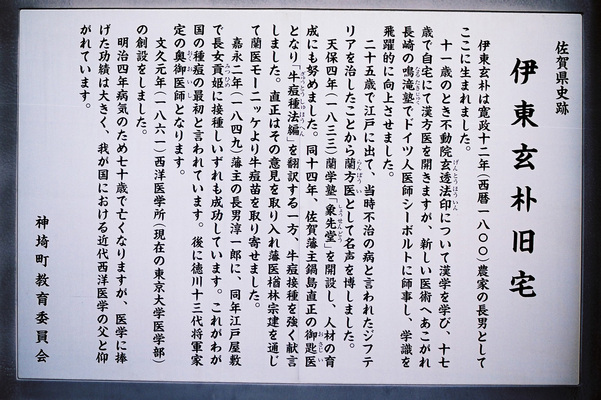 佐賀県史跡
伊東玄朴旧宅
伊東玄朴は寛政十二年(西暦一八〇〇)農家の長男として
ここに生まれました。
十一歳のとき不動院玄透法印について漢学を学び、十七
歳で自宅にて漢方医を開きますが、新しい医術へあこがれ
長崎の鳴滝塾でドイツ人医師シーボルトに師事し、学識を
飛躍的に向上させました。
二十五歳で江戸に出て、当時不治の病と言われたジフテ
リアを治したことから蘭方医として名声を博しました。
天保四年(一八三三)蘭学塾「象先堂」を開設し、人材の育
成にも努めました。同十四年、佐賀藩主鍋島直正の御匙医
となり「牛痘種法編」を翻訳する一方、牛痘接種を強く献言
しました。直正はその意見を取り入れ藩医楢林宗建を通じ
て蘭医モーニッケより牛痘苗を取り寄せました。
嘉永二年(一八四九)藩主の長男淳一郎に、同年江戸屋敷
で長女貢姫に接種しいずれも成功しています。これがわが
国の種痘の最初と言われています。後に徳川十三代将軍家
定の奥御医師となります。
文久元年(一八六一)西洋医学所(現在の東京大学医学部)
の創設をしました。
明治四年病気のため七十歳で亡くなりますが、医学に捧
げた功績は大きく、我が国における近代西洋医学の父と仰
がれています。
神埼町教育委員会